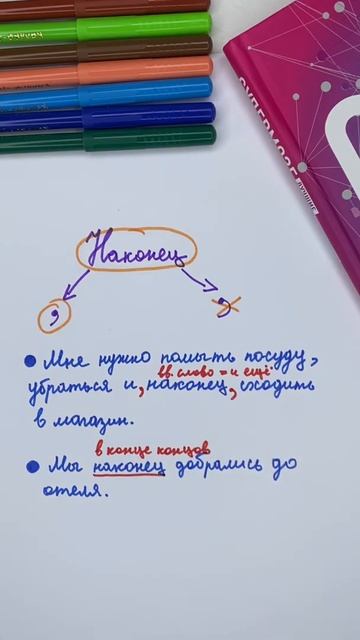 СУПЕРМОЗГ
Наконец
,
,
Мне нужно помыть посуду,
вв. слово = и ещё
убраться и, наконец, сходить
в магазин.
в конце концов
Мы наконец добрались до
отеля.